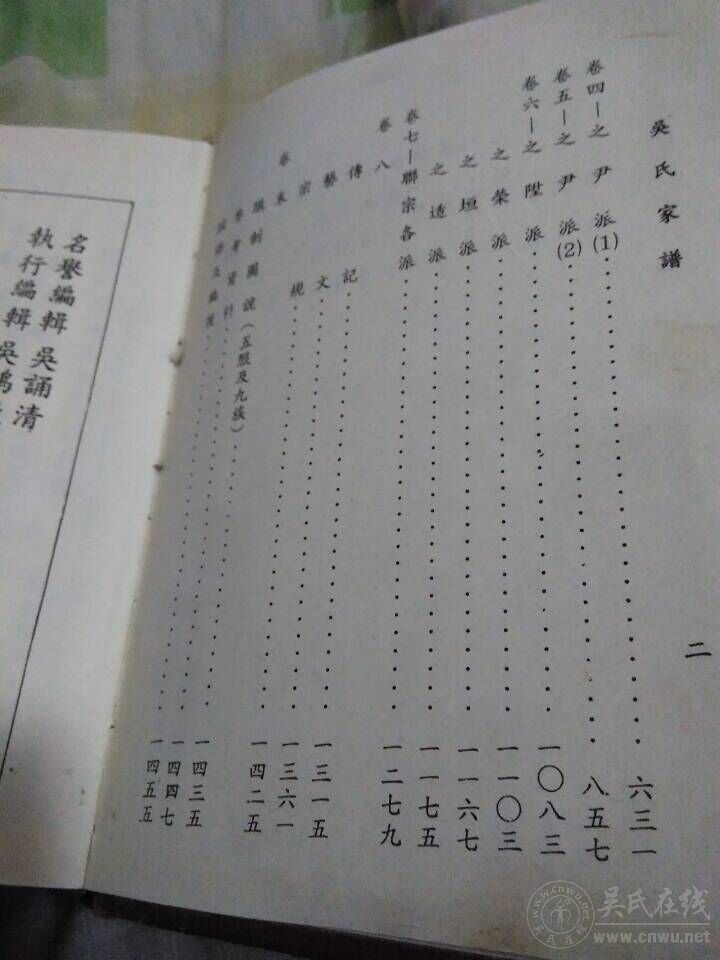 吳氏家譜
二
卷四—之尹派(1)……六三一
卷五—之尹派(2)……八五七
卷六—之陞派……一〇八三
之榮派……一一〇三
之垣派……一一六七
之 派……一一七五
卷七—聯宗各派……一二七九
卷八
傳記……一三一五
藝文……一三六一
宗規……一四二五
卷末
服制圖說（五服及九族）……一四三五
參考資料……一四四七
……一四五五
名譽編輯 吳誦清
執行編輯 吳鴻
吳氏在线
www.cnwu.net